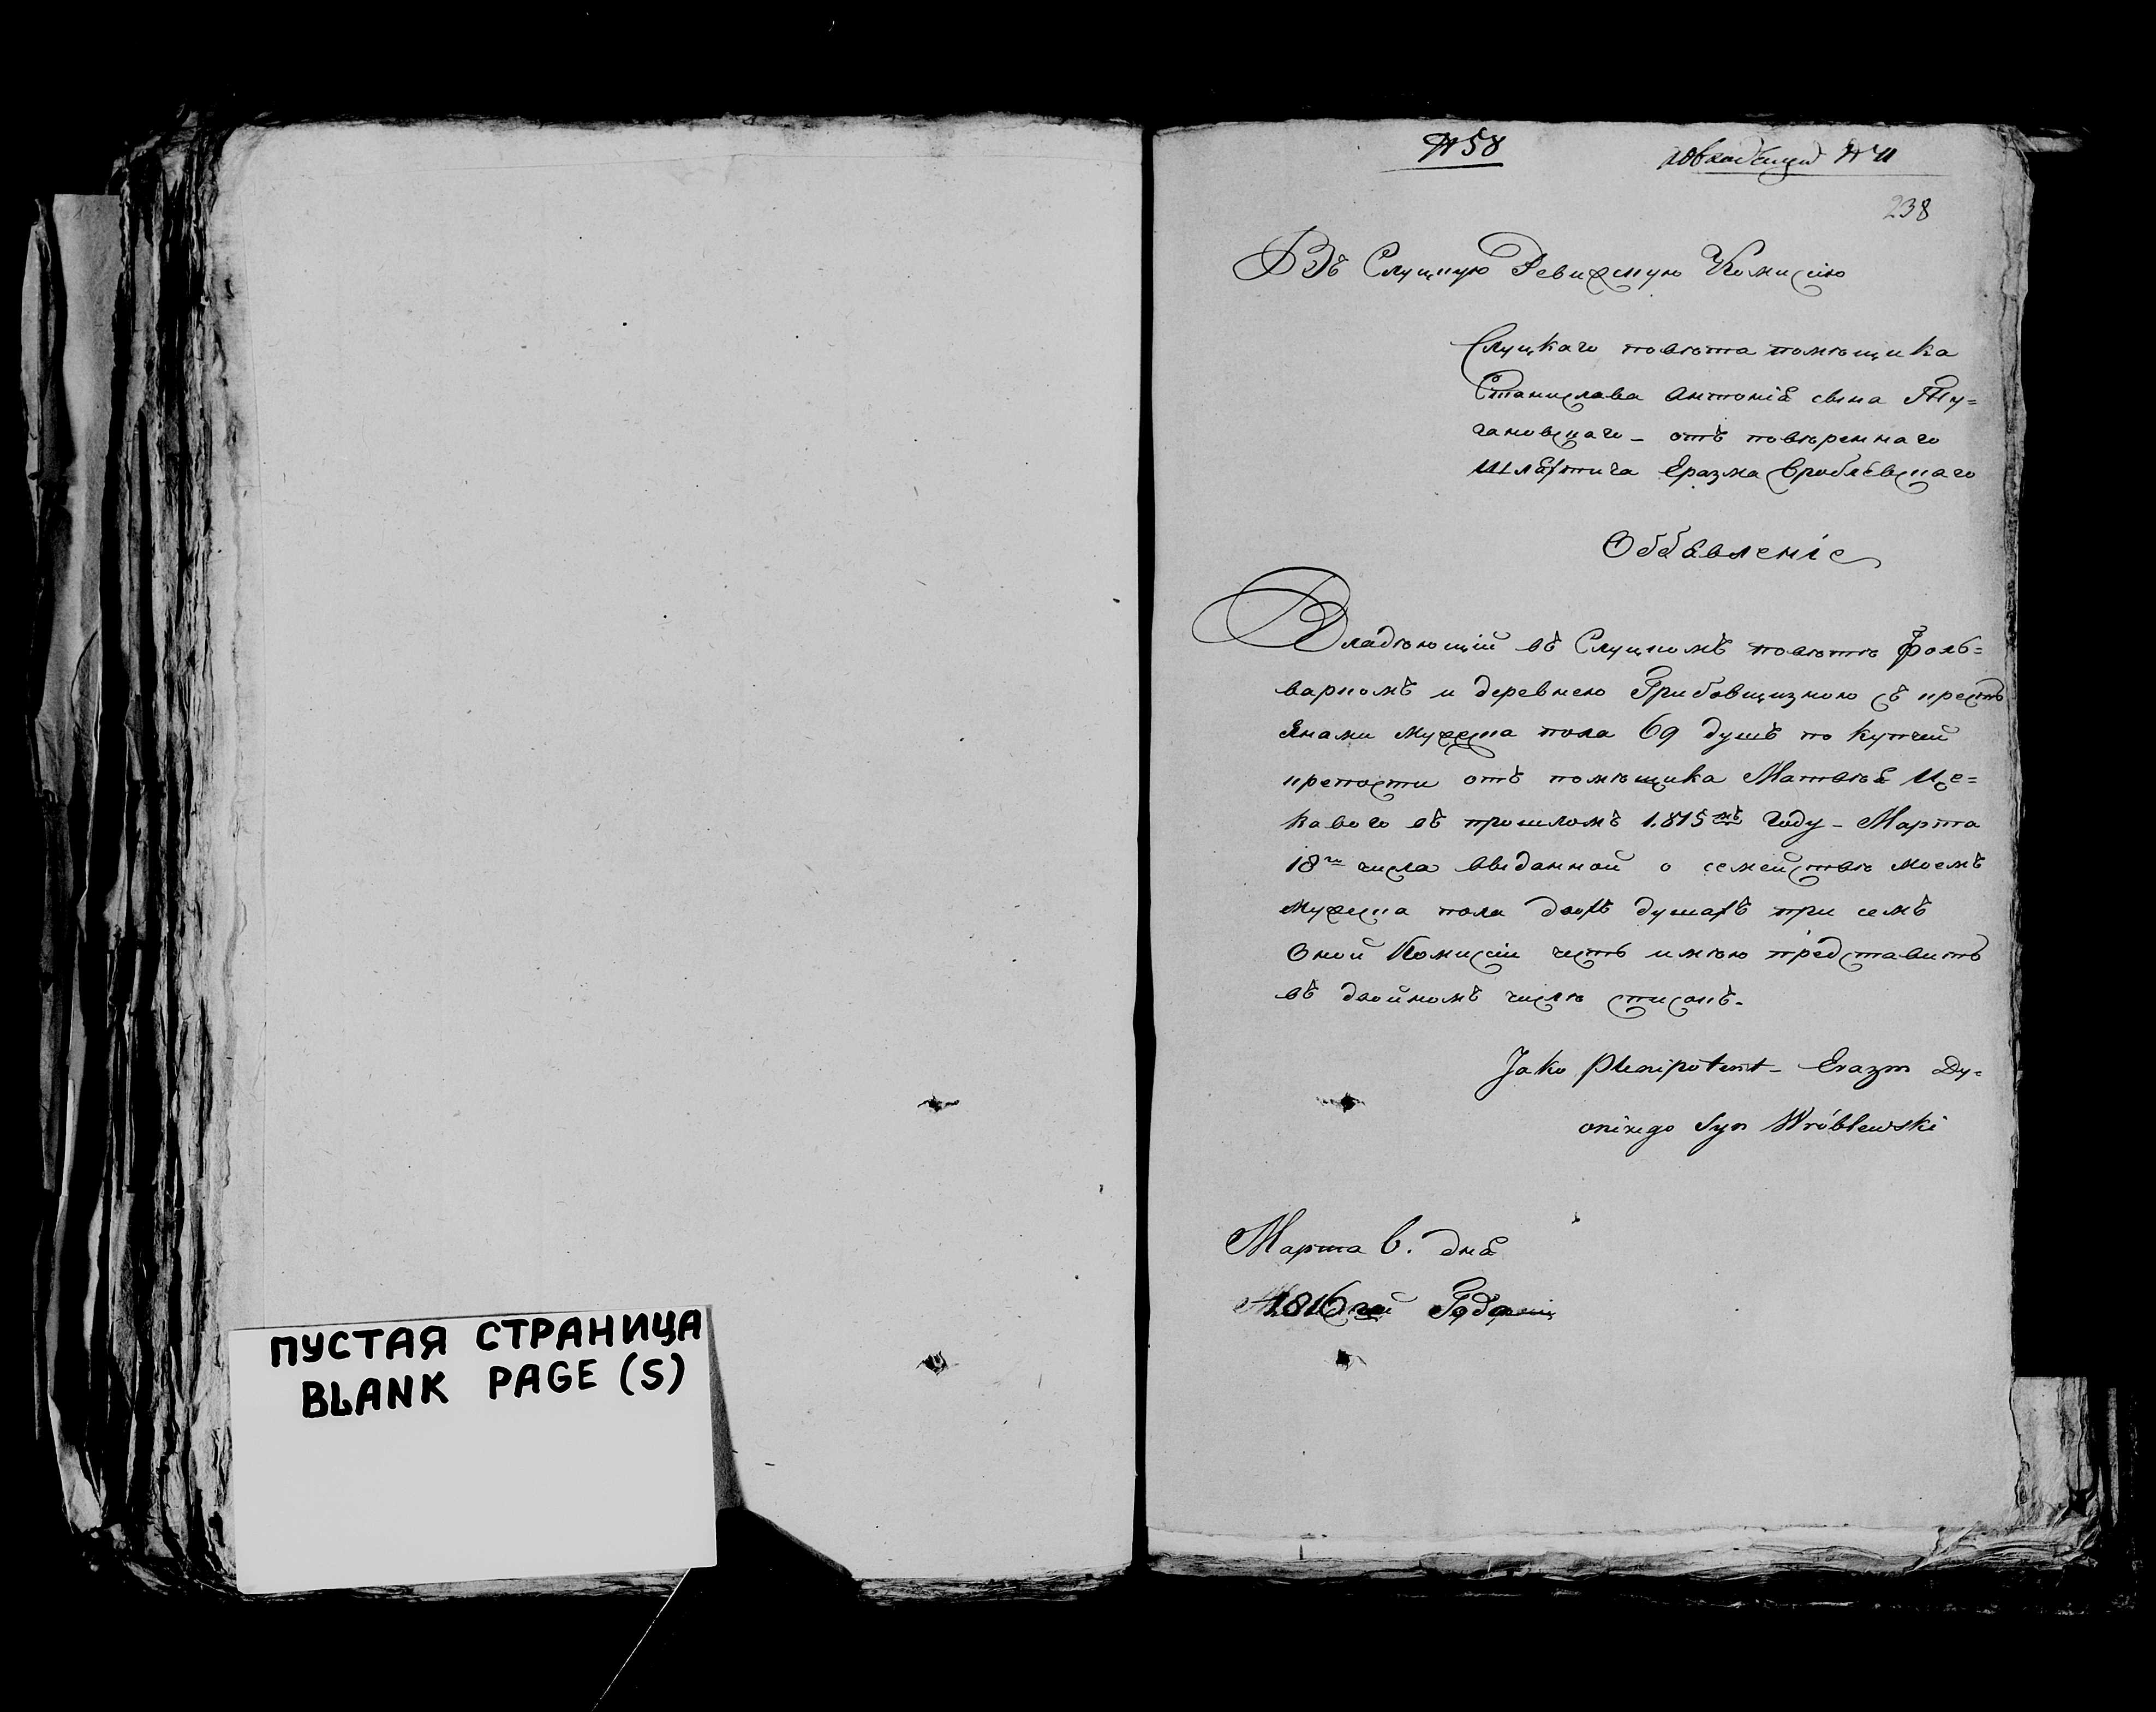 ПУСТАЯ СТРАНИЦА
BLANK PAGE (S)
№ 58
№ 11
238
Въ Слуцкую Ревизскую Комисію
Слуцкаго повѣта помѣщика
Станислава Антонія сына Ту=
гановскаго - отъ повѣреннаго
Шляхтича Еразма Вроблевскаго
Объявленіе
Владѣющій въ Слуцкомъ повѣтѣ фоль=
варкомъ и деревнею Грибовщизною съ крестъ
янами мужеска пола 69 душъ по купчей
крепости отъ помѣщика Матвѣя Це=
каваго въ прошломъ 1815мъ году - Марта
18го числа выданной о семействѣ моемъ
мужеска пола двухъ душахъ при семъ
Оной Комисіи честь имѣю представить
въ двойномъ числѣ списокъ.
Jako Plenipotent - Erazm Dy=
onizego Syn Wróblewski
Марта 6. дня
1816 года